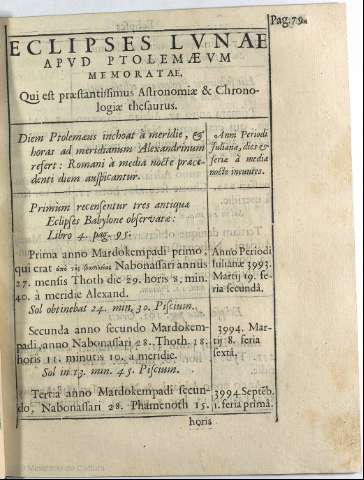 Pag. 79.
ECLIPSES LVNAE
APVD PTOLEMÆVM
MEMORATAE,
Qui est præstantissimus Astronomiæ & Chrono-
logiæ thesaurus.
Diem Ptolemæus inchoat à meridie, &
horas ad meridianum Alexandrinum
refert: Romani à media nocte præce-
denti diem auspicantur.
Anni Periodi
Iulianæ, dies &
feriæ à media
nocte ineuntes.
Primùm recensentur tres antiquæ
Eclipses Babylone observatæ:
Libro 4. pag. 95.
Prima anno Mardokempadi primo,
qui erat Nabonassari annus
27. mensis Thoth die 29. horis 8. min.
40. à meridie Alexand.
Sol obtinebat 24. min. 30. Piscium.
Anno Periodi
Iulianæ 3993.
Martij 19. fe-
ria secundâ.
Secunda anno secundo Mardokem-
padi, anno Nabonassari 28. Thoth. 18.
horis 11. minutis 10. à meridie.
Sol in 13. min. 45. Piscium.
3994. Mar-
tij 8. feria
sextâ.
Tertia anno Mardokempadi secun-
do, Nabonassari 28. Phamenoth 15.
3994. Septẽb.
1. feria primâ.
horis
Ministerio de Cultura